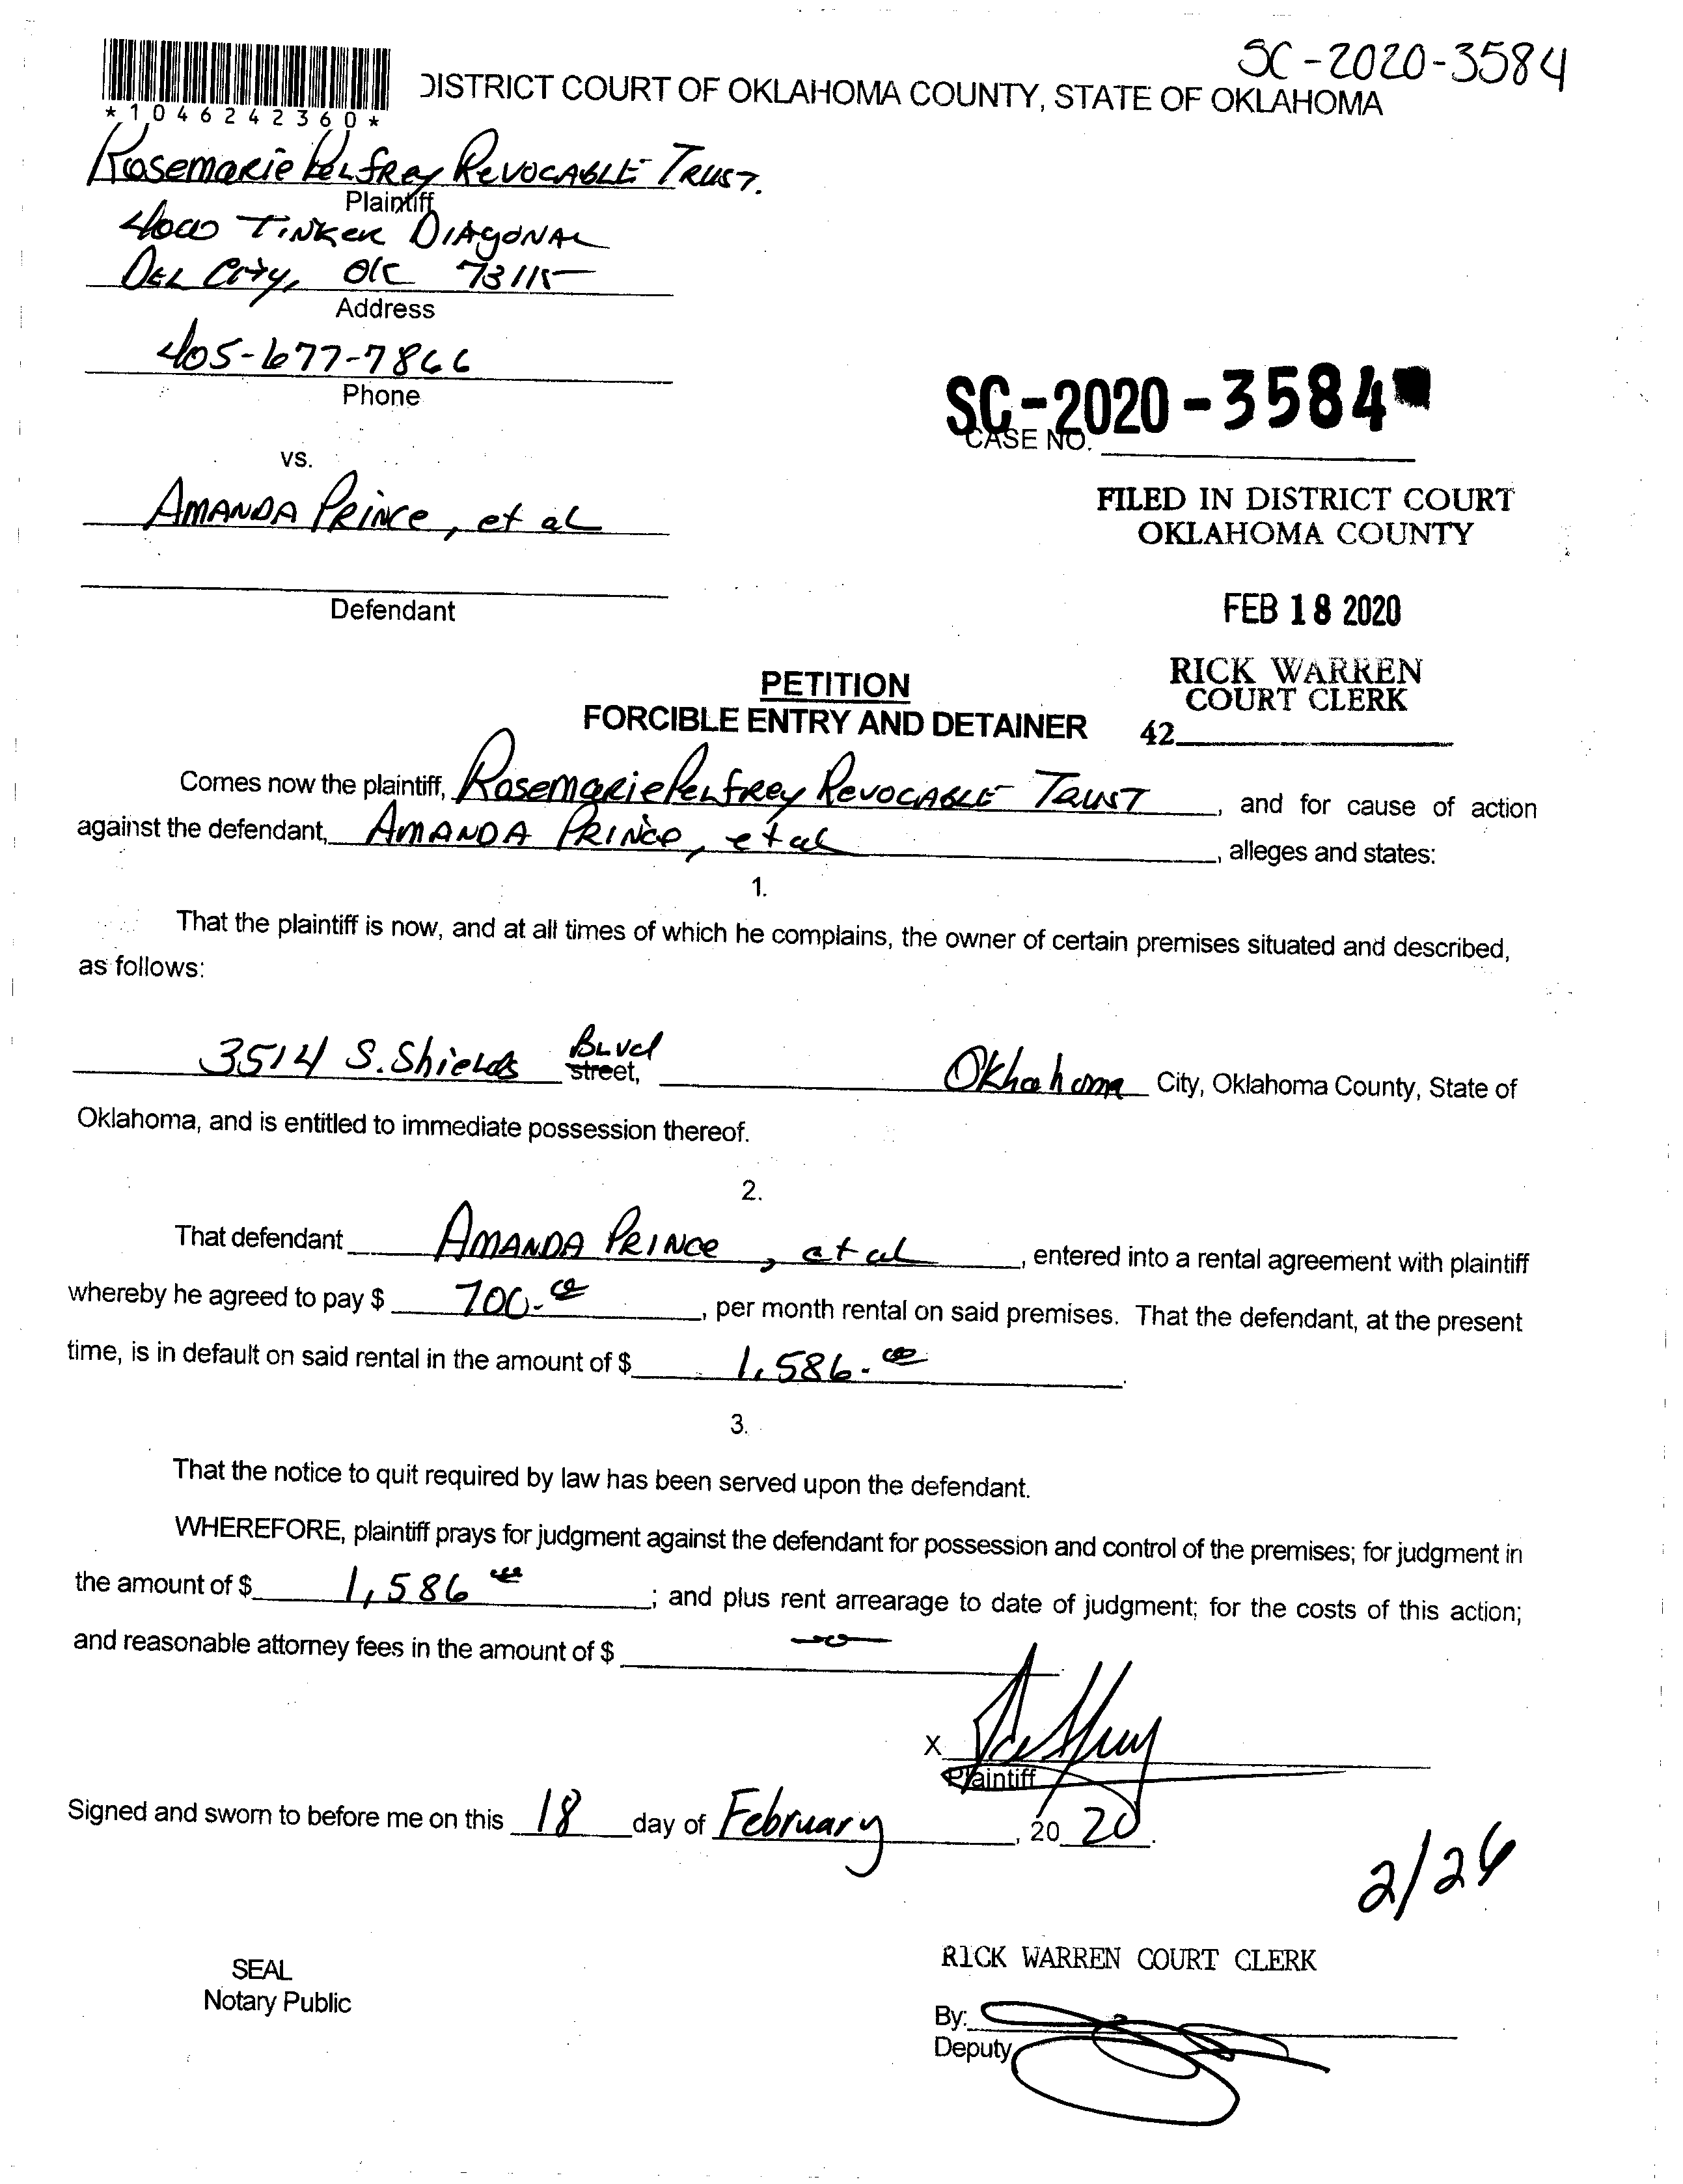 SC-2020-3584
*1046242360*
DISTRICT COURT OF OKLAHOMA COUNTY, STATE OF OKLAHOMA
Rosemarie Pelfrey Revocable Trust.
Plaintiff
4000 Tinker Diagonal
Del City, OK 73115
Address
405-677-7866
Phone
SC-2020-3584
CASE NO.
vs.
Amanda Prince, et al
FILED IN DISTRICT COURT
OKLAHOMA COUNTY
Defendant
FEB 18 2020
RICK WARREN
COURT CLERK
42
PETITION
FORCIBLE ENTRY AND DETAINER
Comes now the plaintiff, Rosemarie Pelfrey Revocable Trust, and for cause of action
against the defendant, Amanda Prince, et al, alleges and states:
1.
That the plaintiff is now, and at all times of which he complains, the owner of certain premises situated and described,
as follows:
3514 S. Shields Blvd street, Oklahoma City, Oklahoma County, State of
Oklahoma, and is entitled to immediate possession thereof.
2.
That defendant Amanda Prince, et al, entered into a rental agreement with plaintiff
whereby he agreed to pay $ 700.00, per month rental on said premises. That the defendant, at the present
time, is in default on said rental in the amount of $ 1,586.00.
3.
That the notice to quit required by law has been served upon the defendant.
WHEREFORE, plaintiff prays for judgment against the defendant for possession and control of the premises; for judgment in
the amount of $ 1,586 00; and plus rent arrearage to date of judgment; for the costs of this action;
and reasonable attorney fees in the amount of $ -0-
X
Plaintiff
Signed and sworn to before me on this 18 day of February, 20 20.
2/26
SEAL
Notary Public
RICK WARREN COURT CLERK
By:
Deputy